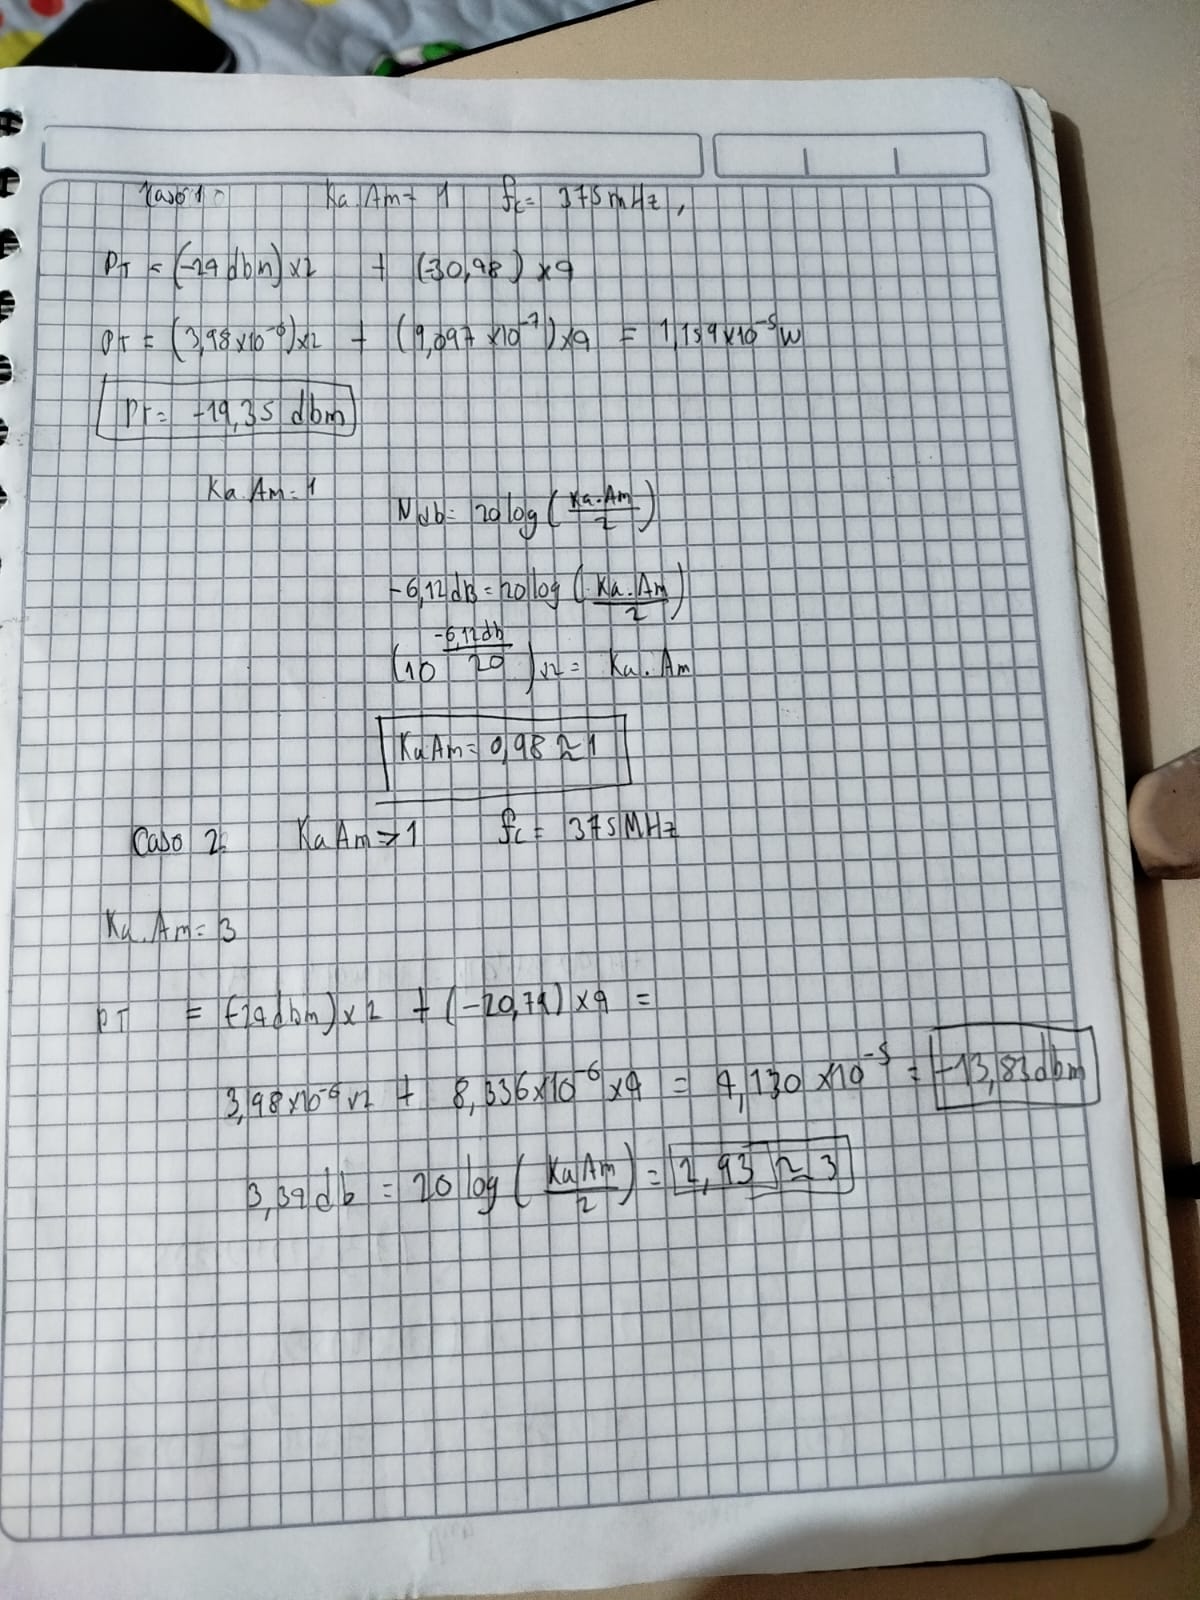 Caso 1: Ka.Am= 1 fc= 375 mHz,
PT = (-24 dbm) x2 + (-30,98) x4
PT = (3,98x10^-6)x2 + (9,097 x10^-7)x4 = 1,159x10^-5 W
PT= -19,35 dbm
Ka.Am=1
Ndb= 20 log (Ka.Am/2)
-6,12 dB = 20 log (Ka.Am/2)
(10^(-6,12db/20)) x2 = Ka.Am
KaAm= 0,98 ≈ 1
Caso 2: KaAm > 1 fc = 375 MHz
Ka.Am= 3
PT = (-24 dbm) x 2 + (-20,79) x4 =
3,98x10^-6 x2 + 8,336x10^-6 x4 = 4,130 x10^-5 = -13,83 dbm
3,34 db = 20 log (KaAm/2) = 2,93 ≈ 3